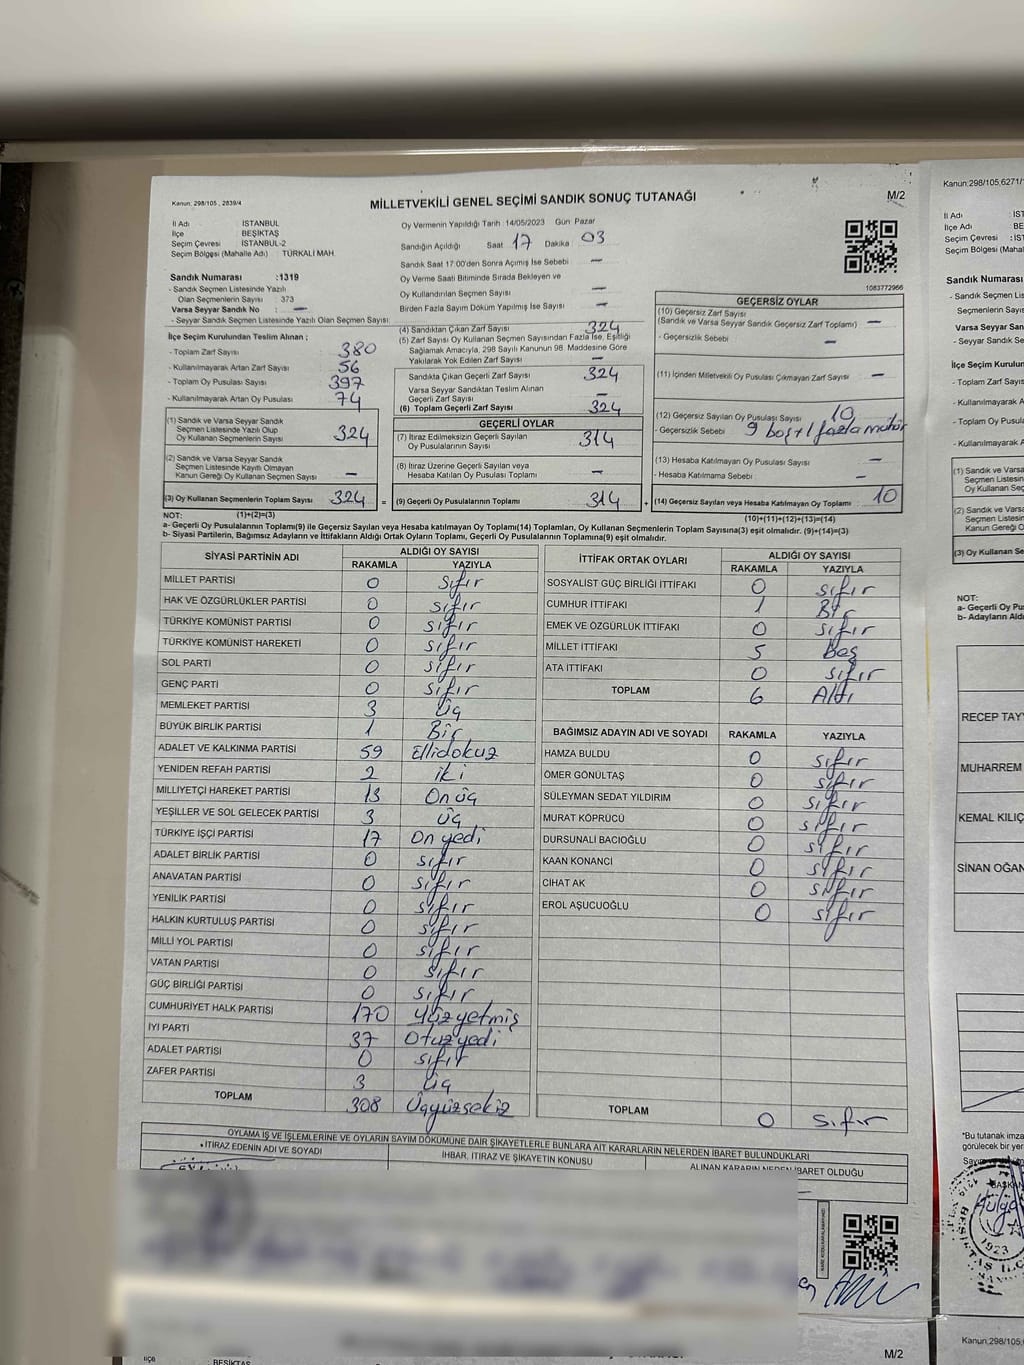 Kanun: 298/105 , 2839/4
MİLLETVEKİLİ GENEL SEÇİMİ SANDIK SONUÇ TUTANAĞI
M/2
İl Adı : İSTANBUL
İlçe : BEŞİKTAŞ
Seçim Çevresi : İSTANBUL-2
Seçim Bölgesi (Mahalle Adı) : TÜRKALİ MAH.
Oy Vermenin Yapıldığı Tarih : 14/05/2023 Gün: Pazar
Sandığın Açıldığı Saat 17 Dakika : 03
Sandık Saat 17:00'den Sonra Açımış İse Sebebi —
Oy Verme Saati Bitiminde Sırada Bekleyen ve
Oy Kullandırılan Seçmen Sayısı —
Birden Fazla Sayım Döküm Yapılmış İse Sayısı —
1083772966
Sandık Numarası :1319
- Sandık Seçmen Listesinde Yazılı
Olan Seçmenlerin Sayısı : 373
Varsa Seyyar Sandık No : —
- Seyyar Sandık Seçmen Listesinde Yazılı Olan Seçmen Sayısı:
İlçe Seçim Kurulundan Teslim Alınan ;
- Toplam Zarf Sayısı 380
- Kullanılmayarak Artan Zarf Sayısı 56
- Toplam Oy Pusulası Sayısı 397
- Kullanılmayarak Artan Oy Pusulası 74
(1) Sandık ve Varsa Seyyar Sandık
Seçmen Listesinde Yazılı Olup
Oy Kullanan Seçmenlerin Sayısı 324
(2) Sandık ve Varsa Seyyar Sandık
Seçmen Listesinde Kayıtlı Olmayan
Kanun Gereği Oy Kullanan Seçmen Sayısı —
(3) Oy Kullanan Seçmenlerin Toplam Sayısı 324
(4) Sandıktan Çıkan Zarf Sayısı 324
(5) Zarf Sayısı Oy Kullanan Seçmen Sayısından Fazla İse, Eşitliği
Sağlamak Amacıyla, 298 Sayılı Kanunun 98. Maddesine Göre
Yakılarak Yok Edilen Zarf Sayısı —
Sandıkta Çıkan Geçerli Zarf Sayısı 324
Varsa Seyyar Sandıktan Teslim Alınan
Geçerli Zarf Sayısı —
(6) Toplam Geçerli Zarf Sayısı 324
GEÇERLİ OYLAR
(7) İtiraz Edilmeksizin Geçerli Sayılan
Oy Pusulalarının Sayısı 314
(8) İtiraz Üzerine Geçerli Sayılan veya
Hesaba Katılan Oy Pusulası Toplamı —
= (9) Geçerli Oy Pusulalarının Toplamı 314
GEÇERSİZ OYLAR
(10) Geçersiz Zarf Sayısı
(Sandık ve Varsa Seyyar Sandık Geçersiz Zarf Toplamı) —
- Geçersizlik Sebebi —
(11) İçinden Milletvekili Oy Pusulası Çıkmayan Zarf Sayısı —
(12) Geçersiz Sayılan Oy Pusulası Sayısı 10
- Geçersizlik Sebebi 9 boş+1 fazla mühür
(13) Hesaba Katılmayan Oy Pusulası Sayısı —
- Hesaba Katılmama Sebebi —
+ (14) Geçersiz Sayılan veya Hesaba Katılmayan Oy Toplamı 10
NOT: (1)+(2)=(3)
(10)+(11)+(12)+(13)=(14)
a- Geçerli Oy Pusulalarının Toplamı(9) ile Geçersiz Sayılan veya Hesaba Katılmayan Oy Toplamı(14) Toplamları, Oy Kullanan Seçmenlerin Toplam Sayısına(3) eşit olmalıdır. (9)+(14)=(3)
b- Siyasi Partilerin, Bağımsız Adayların ve İttifakların Aldığı Ortak Oyların Toplamı, Geçerli Oy Pusulalarının Toplamına(9) eşit olmalıdır.
SİYASİ PARTİNİN ADI ALDIĞI OY SAYISI
RAKAMLA YAZIYLA
MİLLET PARTİSİ 0 sıfır
HAK VE ÖZGÜRLÜKLER PARTİSİ 0 sıfır
TÜRKİYE KOMÜNİST PARTİSİ 0 sıfır
TÜRKİYE KOMÜNİST HAREKETİ 0 sıfır
SOL PARTİ 0 sıfır
GENÇ PARTİ 0 sıfır
MEMLEKET PARTİSİ 3 üç
BÜYÜK BİRLİK PARTİSİ 1 Bir
ADALET VE KALKINMA PARTİSİ 59 Ellidokuz
YENİDEN REFAH PARTİSİ 2 iki
MİLLİYETÇİ HAREKET PARTİSİ 13 Onüç
YEŞİLLER VE SOL GELECEK PARTİSİ 3 üç
TÜRKİYE İŞÇİ PARTİSİ 17 Onyedi
ADALET BİRLİK PARTİSİ 0 sıfır
ANAVATAN PARTİSİ 0 sıfır
YENİLİK PARTİSİ 0 sıfır
HALKIN KURTULUŞ PARTİSİ 0 sıfır
MİLLİ YOL PARTİSİ 0 sıfır
VATAN PARTİSİ 0 sıfır
GÜÇ BİRLİĞİ PARTİSİ 0 sıfır
CUMHURİYET HALK PARTİSİ 170 Yüzyetmiş
İYİ PARTİ 37 Otuzyedi
ADALET PARTİSİ 0 sıfır
ZAFER PARTİSİ 3 üç
TOPLAM 308 Üçyüzsekiz
İTTİFAK ORTAK OYLARI ALDIĞI OY SAYISI
RAKAMLA YAZIYLA
SOSYALİST GÜÇ BİRLİĞİ İTTİFAKI 0 sıfır
CUMHUR İTTİFAKI 1 Bir
EMEK VE ÖZGÜRLÜK İTTİFAKI 0 sıfır
MİLLET İTTİFAKI 5 Beş
ATA İTTİFAKI 0 sıfır
TOPLAM 6 Altı
BAĞIMSIZ ADAYIN ADI VE SOYADI RAKAMLA YAZIYLA
HAMZA BULDU 0 sıfır
ÖMER GÖNÜLTAŞ 0 sıfır
SÜLEYMAN SEDAT YILDIRIM 0 sıfır
MURAT KÖPRÜCÜ 0 sıfır
DURSUNALİ BACIOĞLU 0 sıfır
KAAN KONANCİ 0 sıfır
CİHAT AK 0 sıfır
EROL AŞUCUOĞLU 0 sıfır
TOPLAM 0 sıfır
OYLAMA İŞ VE İŞLEMLERİNE VE OYLARIN SAYIM DÖKÜMÜNE DAİR ŞİKAYETLERLE BUNLARA AİT KARARLARIN NELERDEN İBARET BULUNDUKLARI
İTİRAZ EDENİN ADI VE SOYADI
İHBAR, İTİRAZ VE ŞİKAYETİN KONUSU
ALINAN KARARIN NEDEN İBARET OLDUĞU
İlçe : BEŞİKTAŞ
M/2
Kanun:298/105,6271/
İl Adı : İST
İlçe Adı : BE
Seçim Çevresi : İS
Seçim Bölgesi (Mahal
Sandık Numarası
- Sandık Seçmen Lis
Seçmenlerin Sayısı
Varsa Seyyar Sandık
- Seyyar Sandık Se
İlçe Seçim Kurulun
- Toplam Zarf Sayısı
- Kullanılmayarak A
- Toplam Oy Pusula
- Kullanılmayarak
(1) Sandık ve Varsa
Seçmen Listesin
Oy Kullanan Seç
(2) Sandık ve Varsa
Seçmen Listesin
Kanun Gereği O
(3) Oy Kullanan Se
NOT:
a- Geçerli Oy Pu
b- Adayların Ald
RECEP TAYY
MUHARREM
KEMAL KILIÇ
SİNAN OĞAN
*Bu tutanak imza
görülecek bir yer
BAŞKAN
1923
Kanun: 298/105,